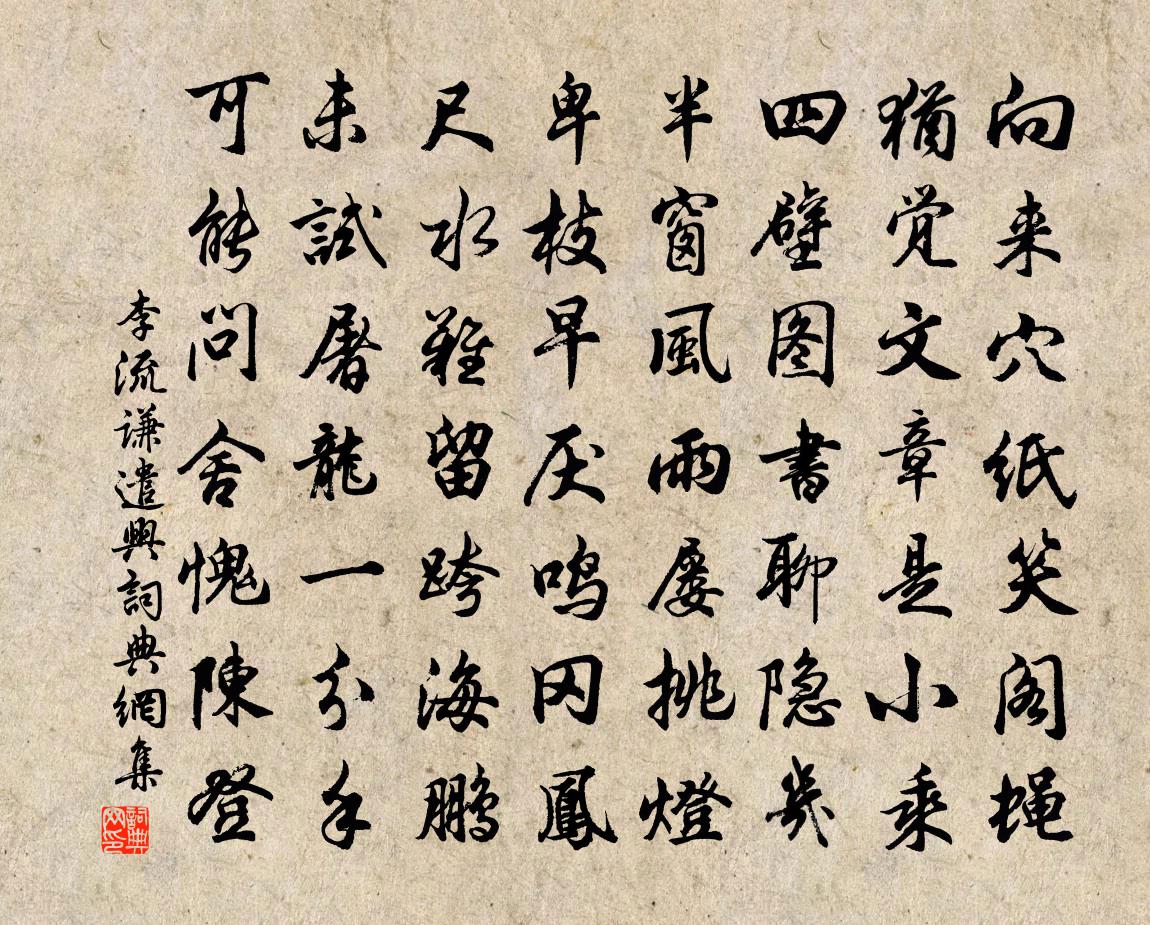 向来穴纸笑阁蝇
猶觉文章是小乘
四壁图書聊隐几
半窗風雨屡挑燈
卑枝早厌鸣冈鳳
尺水難留跨海鹏
未試屠龍一分手
可能问舍愧陳登
李流谦遣興詞典網集
詞典网印